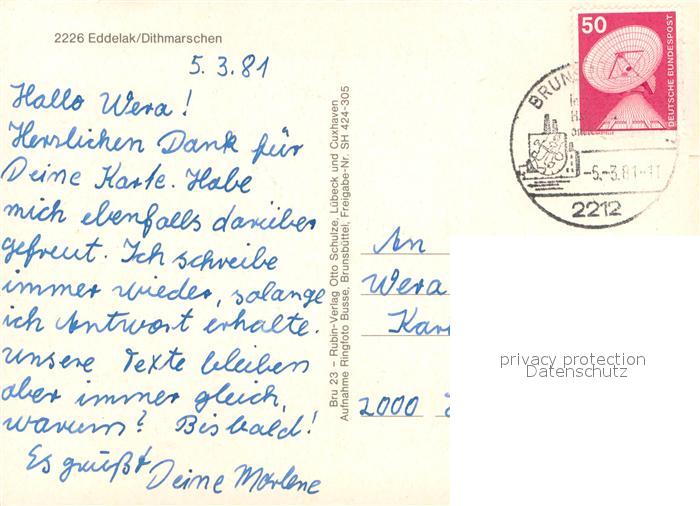 2226 Eddelak/Dithmarschen
5.3.81
Hallo Wera!
Herzlichen Dank für
Deine Karte. Habe
mich ebenfalls darüber
gefreut. Ich schreibe
immer wieder, solange
ich Antwort erhalte.
Unsere Texte bleiben
aber immer gleich,
warum? Bis bald!
Es grüßt
Deine Marlene
Bru 23 – Rubin-Verlag Otto Schulze, Lübeck und Cuxhaven
Aufnahme Ringfoto Busse, Brunsbüttel, Freigabe-Nr. SH 424-305
50
DEUTSCHE BUNDESPOST
BRUNS
-5.-3.81-11
2212
An
Wera
Kar
2000
privacy protection
Datenschutz